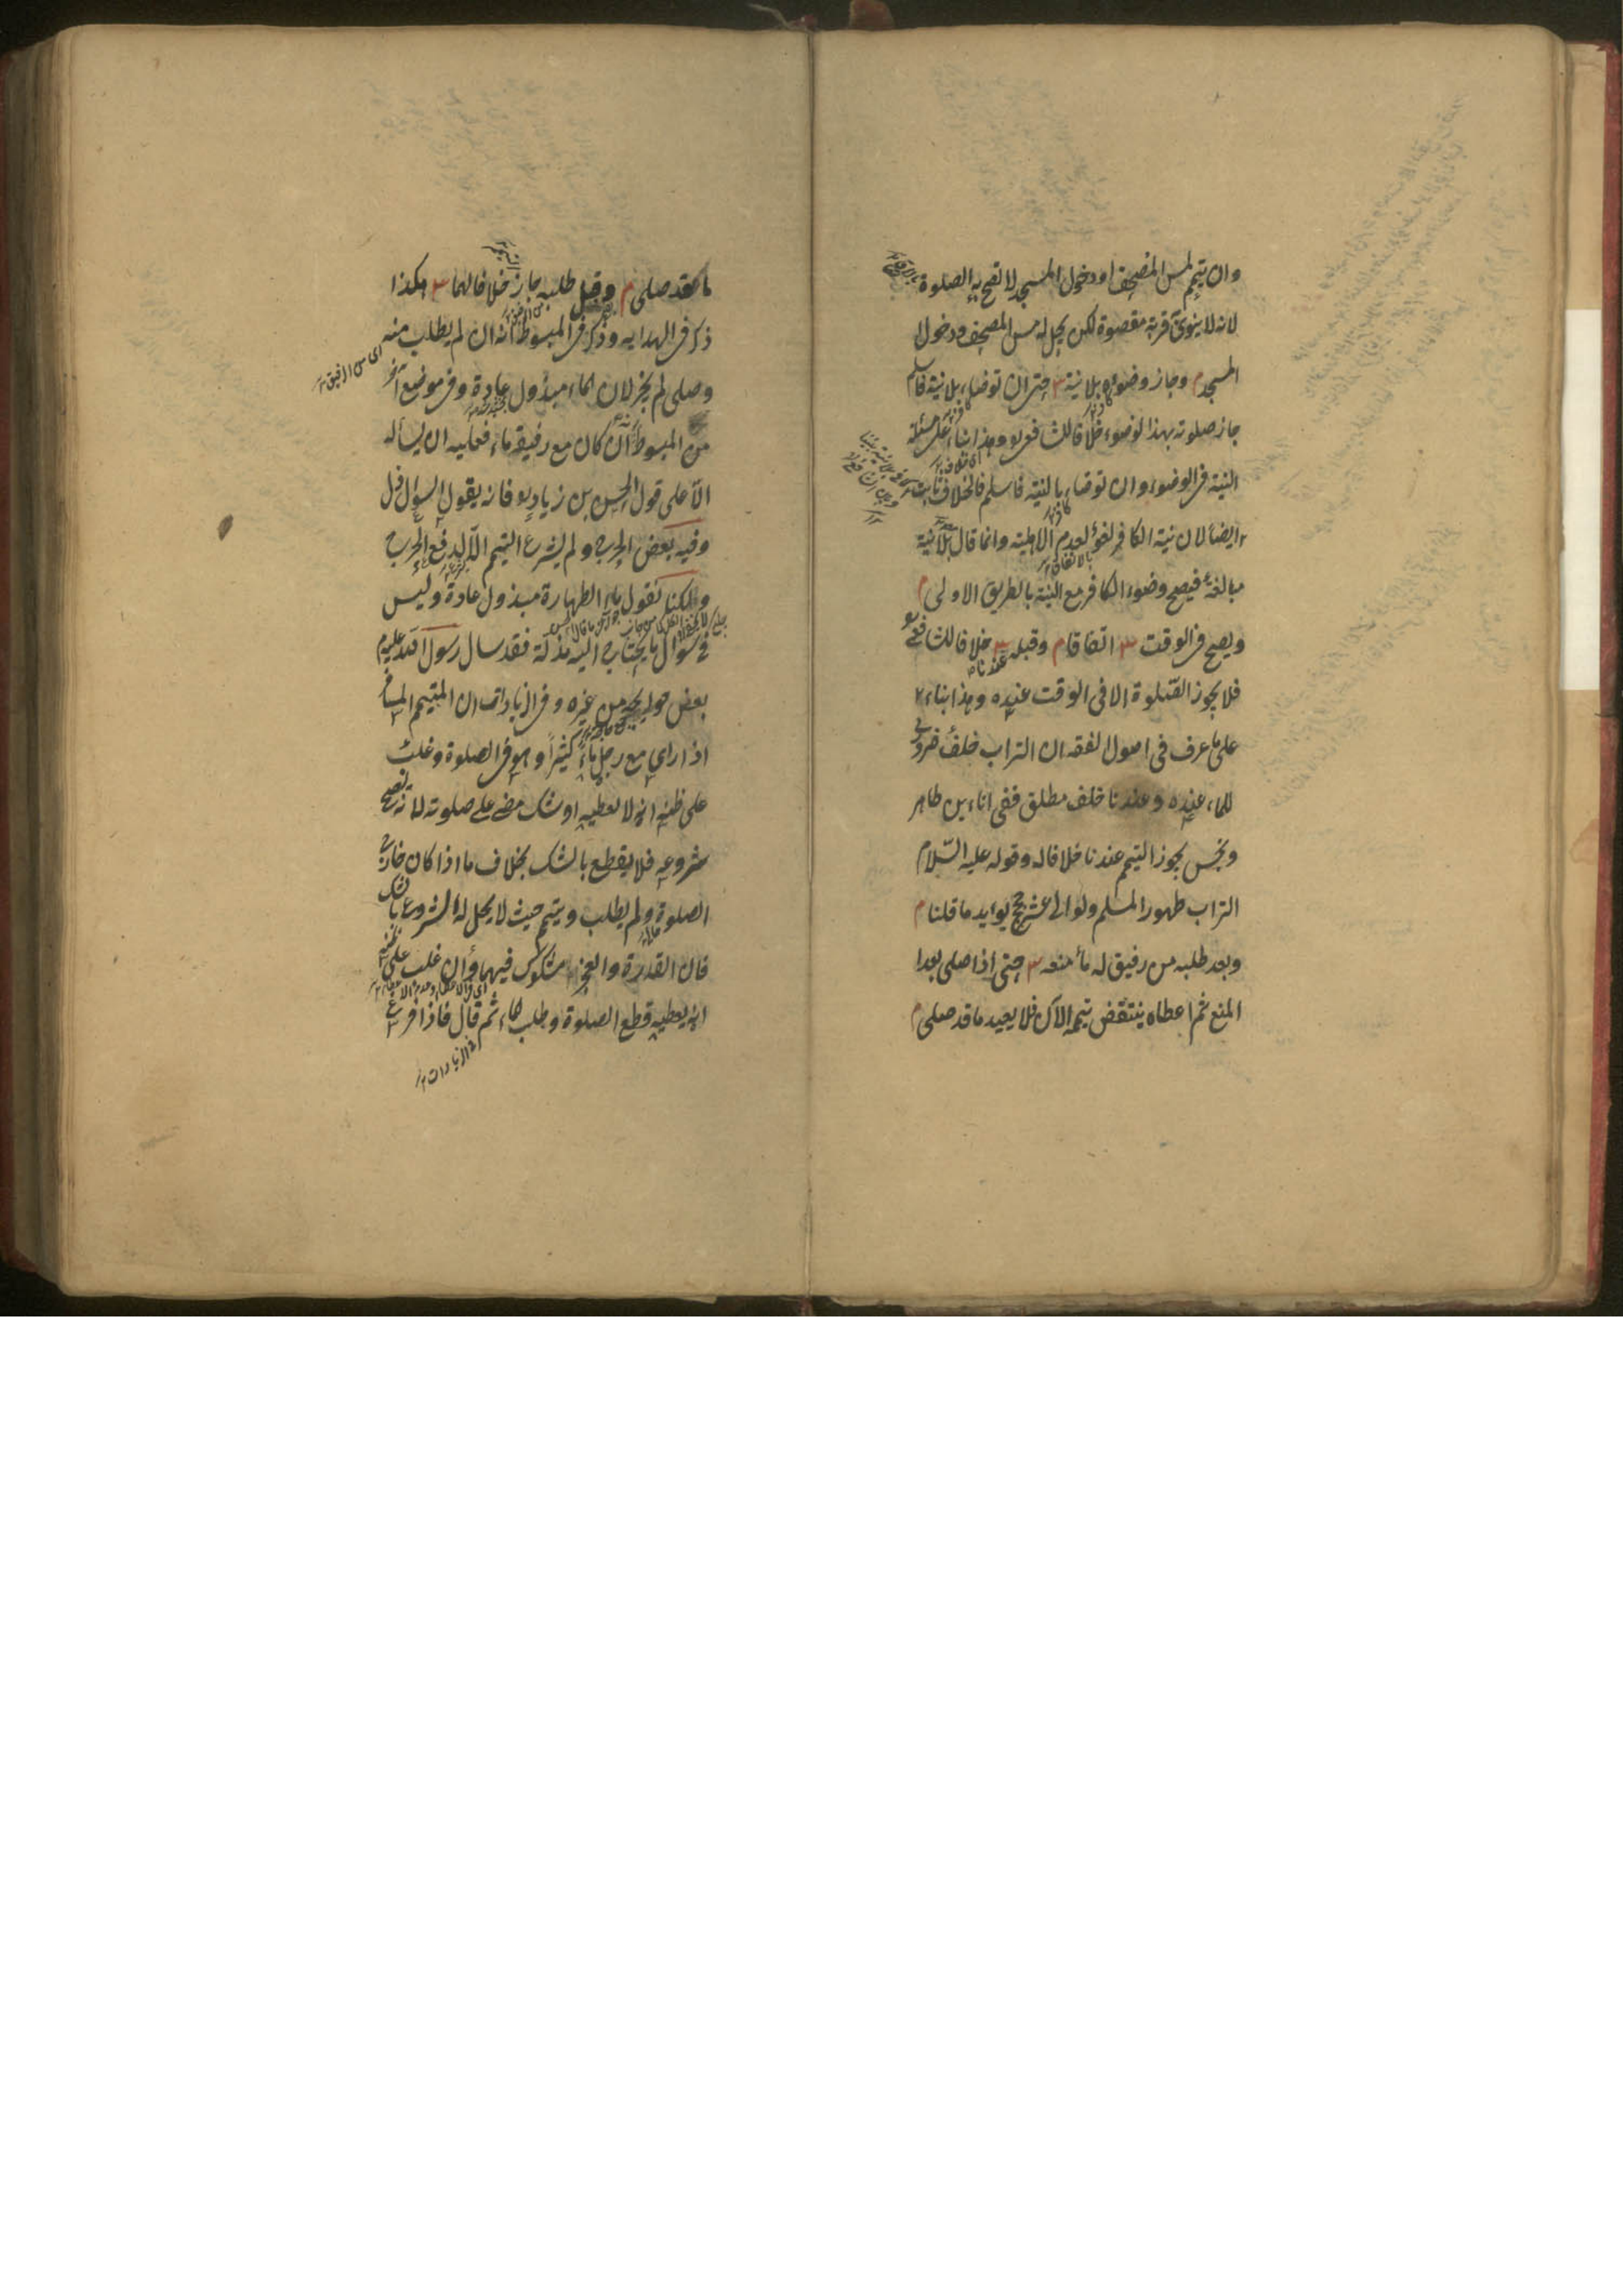 وان تيمم لمس المصحف او دخول المسجد لا تصح به الصلوة
لانه لا ينوى قربة مقصوة لكن يحل له مس المصحف ودخول
المسجد م وجاز وضوءه بلا نية س حتى ان توضاء بلا نية فاسلم
جاز صلوته بهذا لوضوء خلافا للشافعى وهذا بناء على مسئلة
النية فى الوضوء وان توضاء بالنية فاسلم فالخلاف ثابت
ايضا لان نية الكافر لغو لعدم الاهلية وانما قال بلا نية
مبالغة فيصح وضوء الكافر مع النية بالطريق الاولى م
ويصح فى الوقت س اتفاقا م وقبله س خلافا للشافعى
فلا يجوز الصلوة الا فى الوقت عنده وهذا بناء
على ما عرف فى اصول الفقه ان التراب خلف ضرورى
للماء عنده وعندنا خلف مطلق ففى اناءين طاهر
ونجس يجوز التيمم عندنا خلافا له وقوله عليه السّلام
التراب طهور المسلم ولو الى عشر حجج يوايد ما قلنا م
وبعد طلبه من رفيق له ماء منعه س حتى اذا صلى بعد
المنع ثم اعطاه ينتقض تيممه الآن فلا يعيد ما قد صلى م
ما قد صلى م وقبل طلبه جاز خلافا لهما س هكذا
ذكر فى الهدايه وذكر فى المبسوط انه ان لم يطلب منه
وصلى لم يجز لان الماء مبذول عادة وفى موضع آخر
من المبسوط ان كان مع رفيقه ماء فعليه ان يسأله
الّا على قول الحسن بن زياد فانه يقول السؤال ذل
وفيه بعض الحرج ولم يشرع التيمم الّا لدفع الحرج
ولكنا نقول ماء الطهارة مبذول عادة وليس
فى سوال ما يحتاج اليه مذلة فقد سال رسول الله عليه م
بعض حوايجه من غيره وفى الزيادات ان المتيمم المسافر
اذا راى مع رجل ماء كثيراً وهو فى الصلوة وغلب
على ظنه انه لا يعطيه او شك مضى على صلوته لانه صح
شروعه فلا يقطع بالشك بخلاف ما اذا كان خارج
الصلوة ولم يطلب وتيمم حيث لا يحل له الشروع بالشك
فان القدرة والعجز مشكوك فيهما وان غلب على ظنه
انه يعطيه قطع الصلوة وطلب الماء ثم قال فاذا فرغ
فى الزيادات